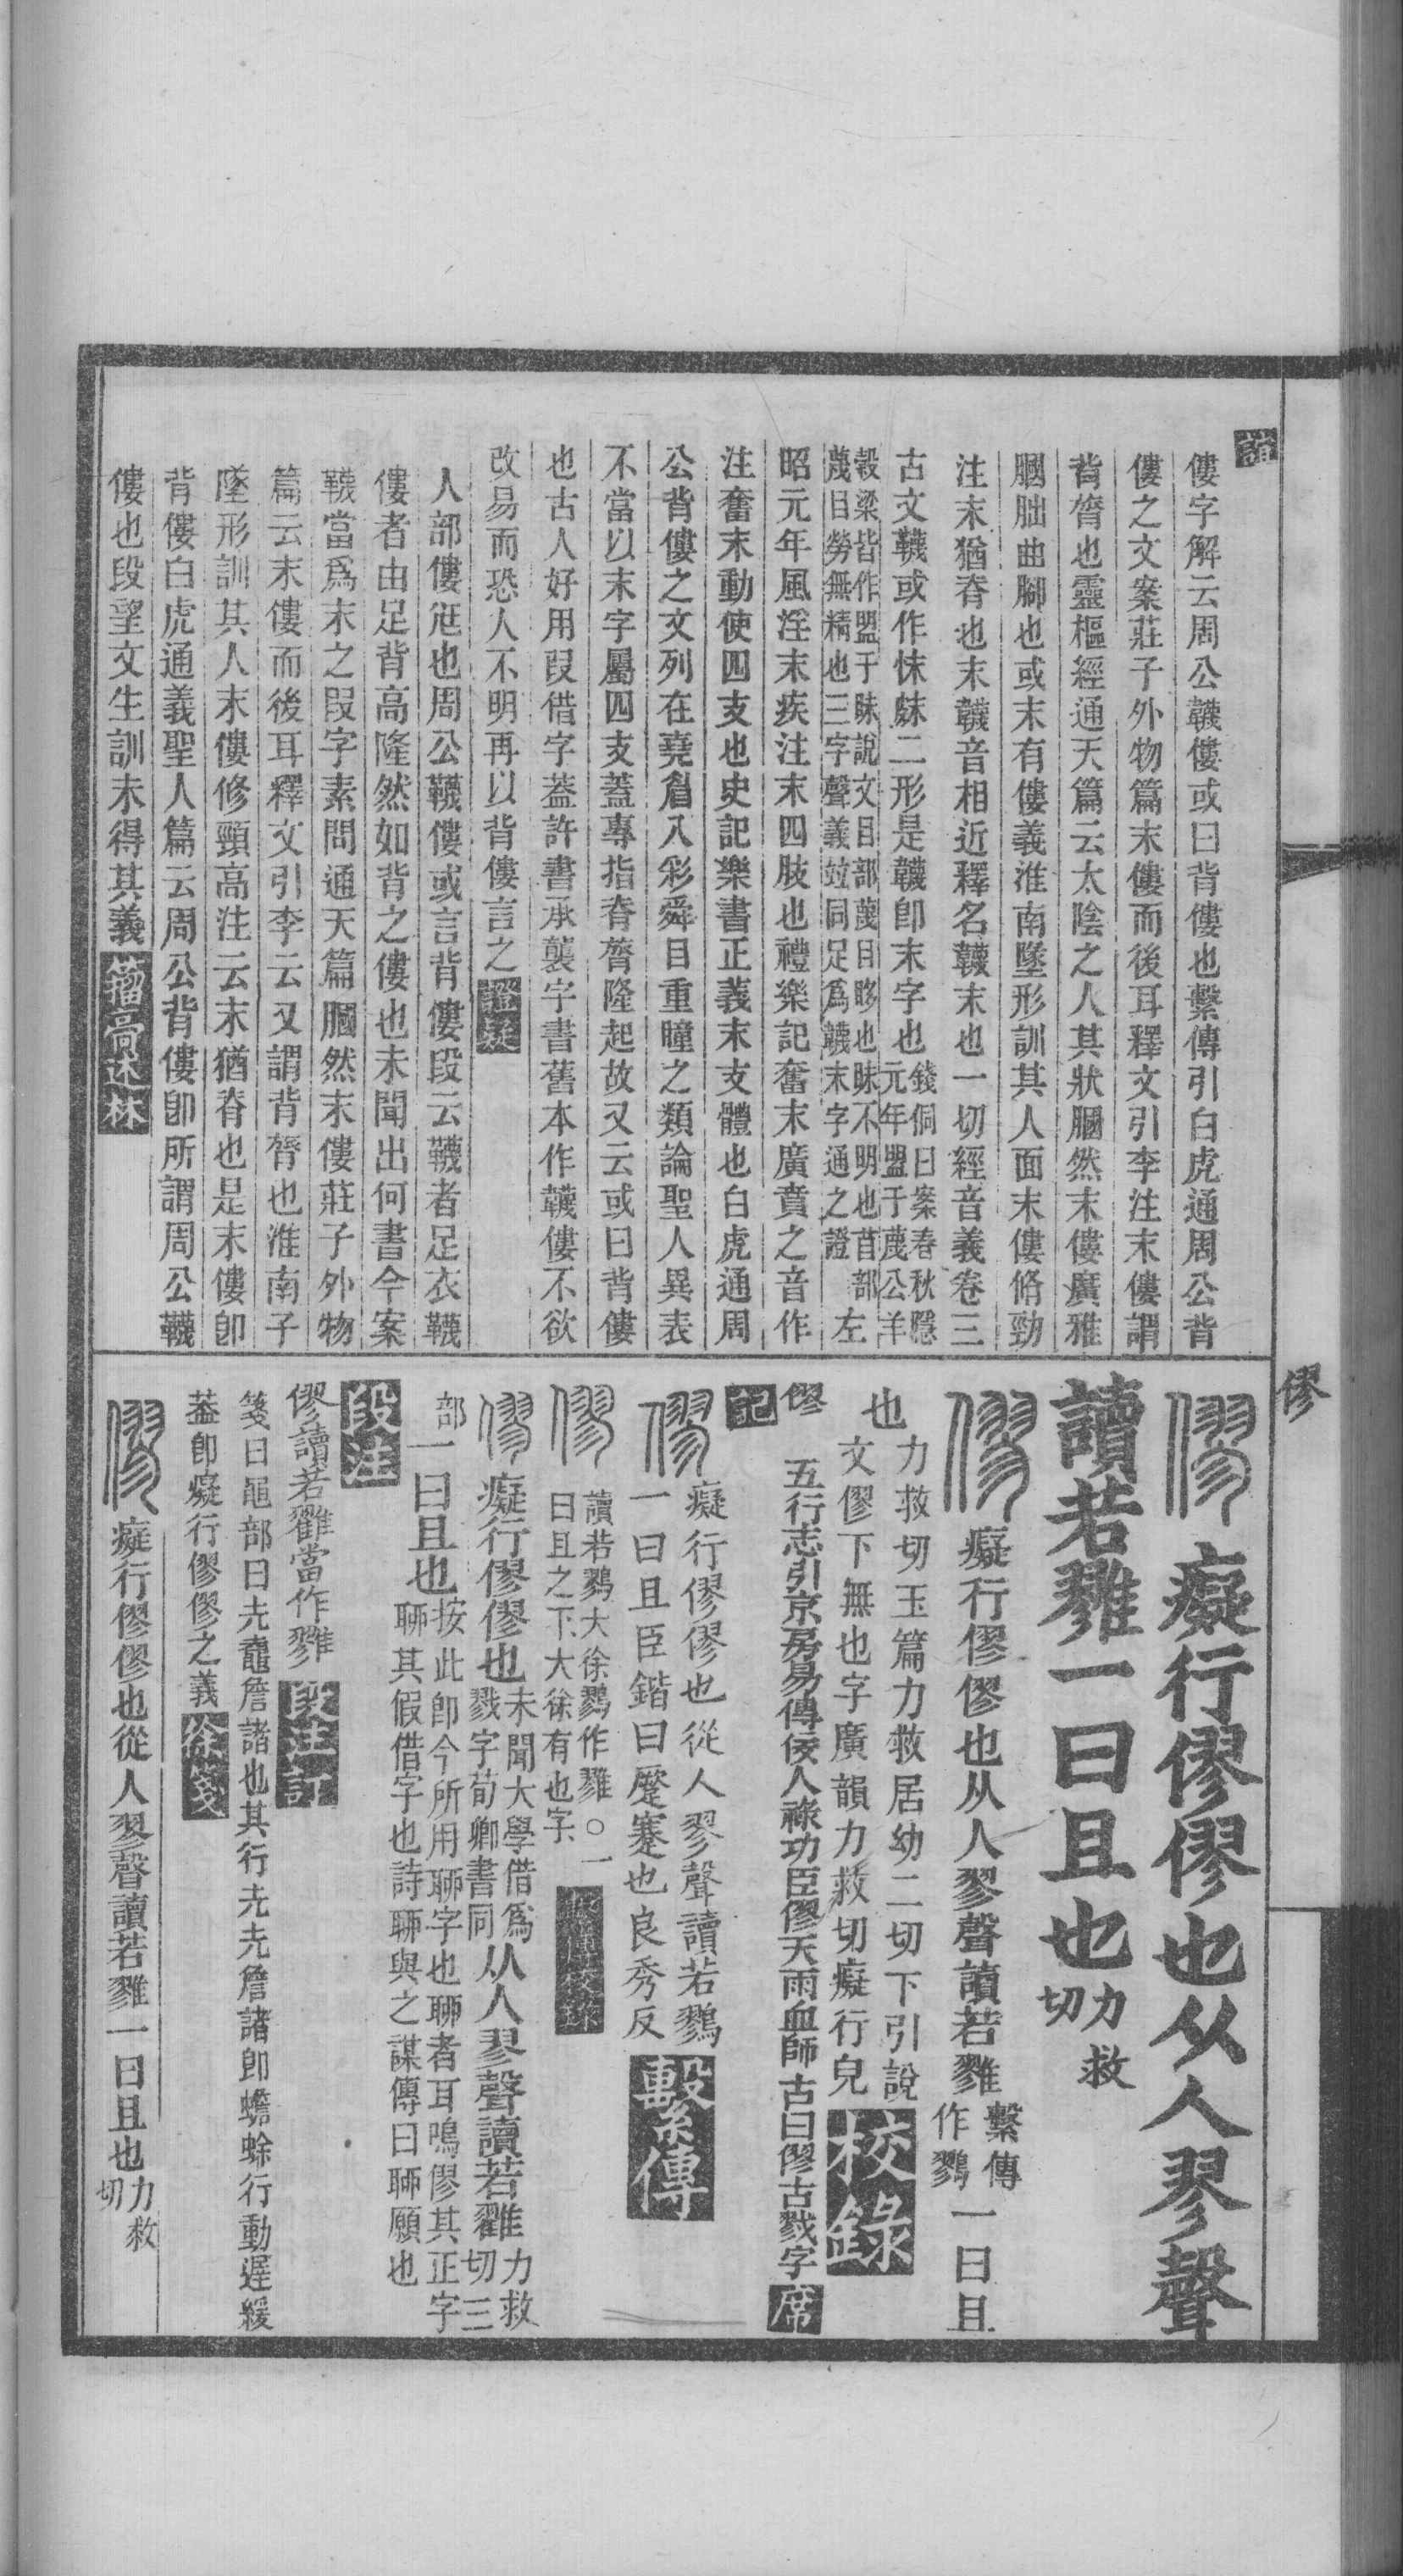 僂字解云周公韈僂或曰背僂也繫傳引白虎通周公背
僂之文案莊子外物篇末僂而後耳釋文引李注末僂謂
背膂也靈樞經通天篇云太陰之人其狀膕然末僂廣雅
膕朏曲腳也或末有僂義淮南墜形訓其人面末僂脩勁
注末猶脊也末韈音相近釋名韈末也一切經音義卷三
古文韈或作怽䬴二形是韈卽末字也
錢侗曰案春秋隱
元年盟于蔑公羊
穀梁皆作盟于眜說文目部蔑目眵也眜不明也苜部
蔑目勞無精也三字聲義竝同足爲韈末字通之證
左
昭元年風淫末疾注末四肢也禮樂記奮末廣賁之音作
注奮末動使四支也史記樂書正義末支體也白虎通周
公背僂之文列在堯眉八彩舜目重瞳之類論聖人異表
不當以末字屬四支蓋專指脊膂隆起故又云或曰背僂
也古人好用叚借字葢許書承襲字書舊本作韈僂不欲
改易而恐人不明再以背僂言之
人部僂尪也周公韈僂或言背僂段云韈者足衣韈
僂者由足背高隆然如背之僂也未聞出何書今案
韈當爲末之叚字素問通天篇膕然末僂莊子外物
篇云末僂而後耳釋文引李云又謂背膂也淮南子
墜形訓其人末僂修頸高注云末猶脊也是末僂卽
背僂白虎通義聖人篇云周公背僂卽所謂周公韈
僂也段望文生訓未得其義
籀膏述林
僇
僇 癡行僇僇也从人翏聲
讀若雡一曰且也
力救
切
僇 癡行僇僇也从人翏聲讀若雡
繫傳
作鷚
一曰且
也
力救切玉篇力救居幼二切下引說
文僇下無也字廣韻力救切癡行皃
校錄
僇
五行志引京房易傳佞人祿功臣僇天雨血師古曰僇古戮字
席
記
僇 癡行僇僇也從人翏聲讀若鷚
一曰且臣鍇曰蹷蹇也良秀反
繫傳
僇
讀若鷚大徐鷚作雡○一
曰且之下大徐有也字
僇 癡行僇僇也
未聞大學借爲
戮字荀卿書同
从人翏聲讀若雡
力救
切三
部
一曰且也
按此卽今所用聊字也聊者耳鳴僇其正字
聊其假借字也詩聊與之謀傳曰聊願也
段注
僇讀若雡當作雡
段注訂
箋曰黽部曰圥鼀詹諸也其行圥圥詹諸卽蟾蜍行動遲緩
葢卽癡行僇僇之義
徐箋
僇 癡行僇僇也從人翏聲讀若雡一曰且也
力救
切